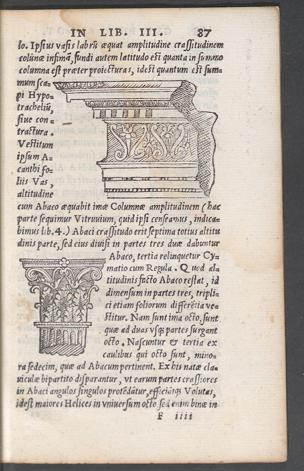 IN LIB. III. 87
lo. Ipsius vasis labrũ æquat amplitudine crassitudinem
colũnæ infimã, fundi autem latitudo est quanta in summo
columna est præter proiecturas, idest quantum est sum-
mum sca-
pi Hypo-
tracheliũ,
siue con-
tractura.
Vestitum
ipsum A-
canthi fo-
lijs Vas,
altitudine
cum Abaco æquabit imæ Columnæ amplitudinem (hac
parte sequimur Vitruuium, quid ipsi censeamus, indica-
bimus lib. 4.) Abaci crassitudo erit septima totius altitu
dinis parte, sed eius diuisi in partes tres duæ dabuntur
Abaco, tertia relinquetur Cy-
matio cum Regula. Quod al-
titudinis facto Abaco restat, id
dimensum in partes tres, tripli-
ci etiam foliorum differẽtia ve-
stitur. Nam sunt imæ octo, sunt
quæ ad duas vsq; partes surgant
octo. Nascuntur è tertia ex
caulibus qui octo sunt, mino-
ra sedecim, quæ ad Abacum pertinent. Ex his natæ cla-
uiculæ bipartito disparantur, vt earum partes crassiores
in Abaci angulos singulos protẽdãtur, efficiãtq; Volutas,
idest maiores Helices in vniuersum octo, sed enim binæ in
F iiii